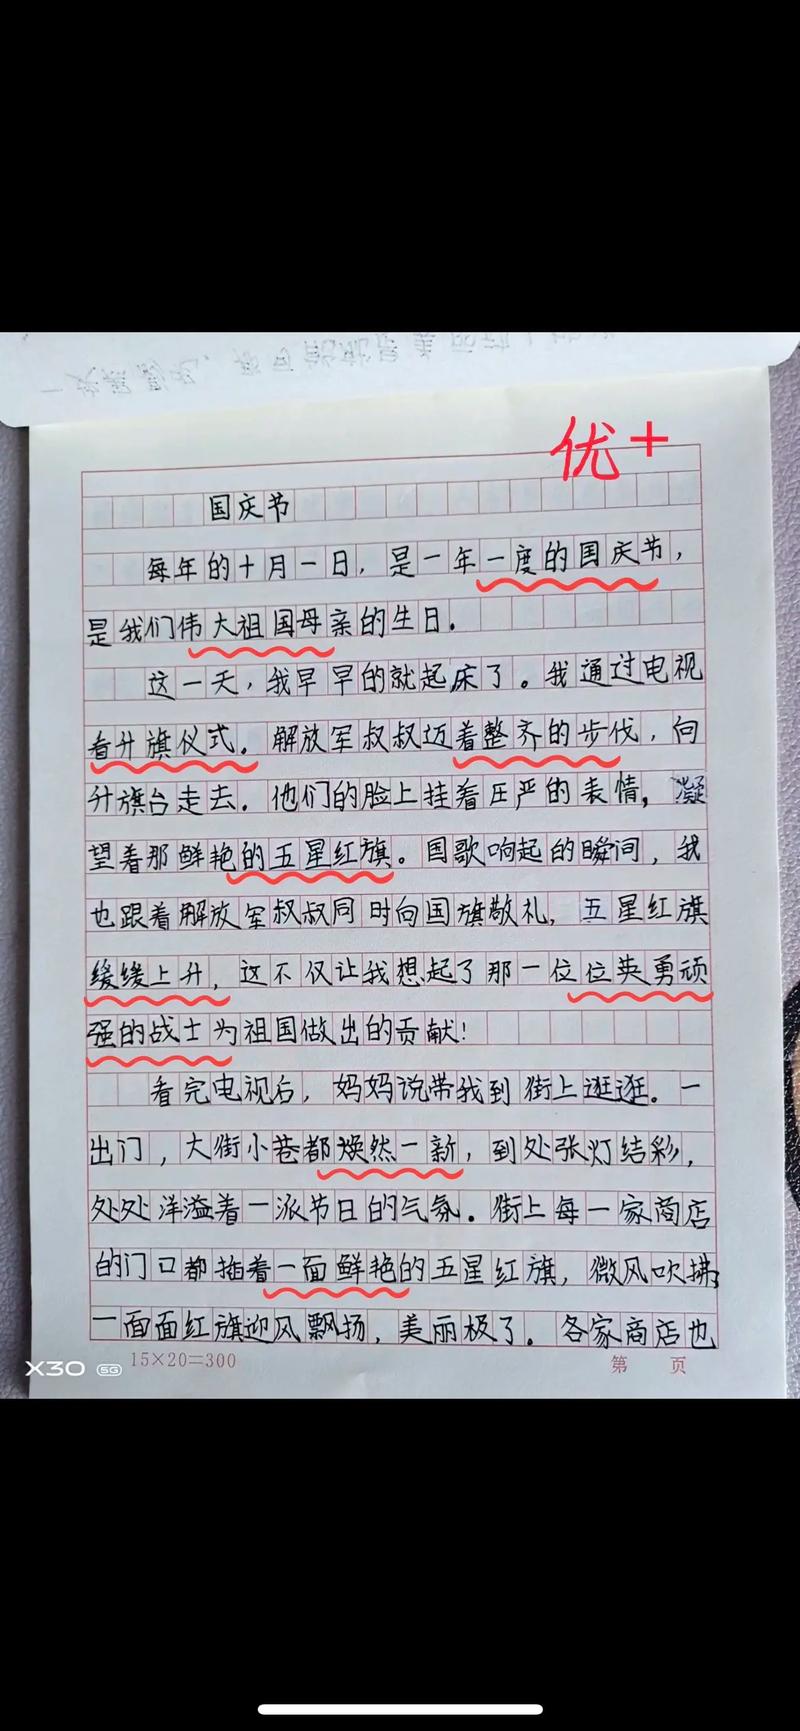 优+
国庆节
每年的十月一日，是一年一度的国庆节，
是我们伟大祖国母亲的生日。
这一天，我早早的就起床了。我通过电视
看升旗仪式。解放军叔叔迈着整齐的步伐，向
升旗台走去。他们的脸上挂着庄严的表情，凝
望着那鲜艳的五星红旗。国歌响起的瞬间，我
也跟着解放军叔叔同时向国旗敬礼，五星红旗
缓缓上升，这不仅让我想起了那一位位英勇顽
强的战士为祖国做出的贡献！
看完电视后，妈妈说带我到街上逛逛。一
出门，大街小巷都焕然一新，到处张灯结彩，
处处洋溢着一派节日的气氛。街上每一家商店
的门口都插着一面鲜艳的五星红旗，微风吹拂，
一面面红旗迎风飘扬，美丽极了。各家商店也
X30 5G
15×20=300
第 页